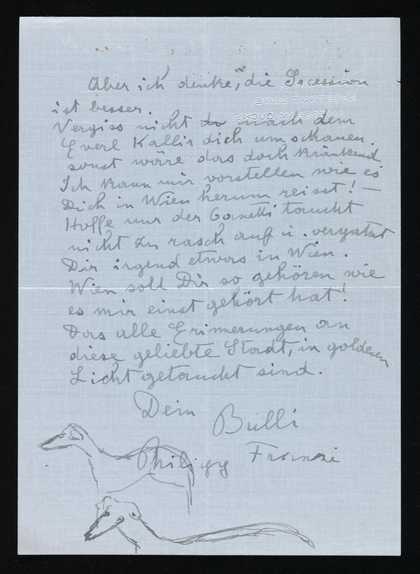 Aber ich denke, die Secession
ist besser.
Vergiss nicht du nach dem
Everl Kallir dich umschauen.
sonst wäre das doch kränkend.
Ich kann mir vorstellen wie es
Dich in Wien herum reisst! –
Hoffe nur der Conetti taucht
nicht zu rasch auf u. verpatzt
Dir irgend etwas in Wien.
Wien soll Dir so gehören wie
es mir einst gehört hat!
Das alle Erinnerungen an
diese geliebte Stadt, in goldenen
Licht getaucht sind.
Dein Bulli
Philipp Franzi